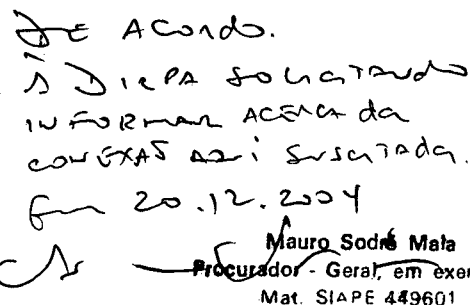 DE ACORDO.
À DIRPA SOLICITANDO
INFORMAR ACERCA da
CONEXÃO AQUI SUSCITADA.
Em 20.12.2004
Mauro Sodré Maia
Procurador - Geral, em exer
Mat. SIAPE 449601